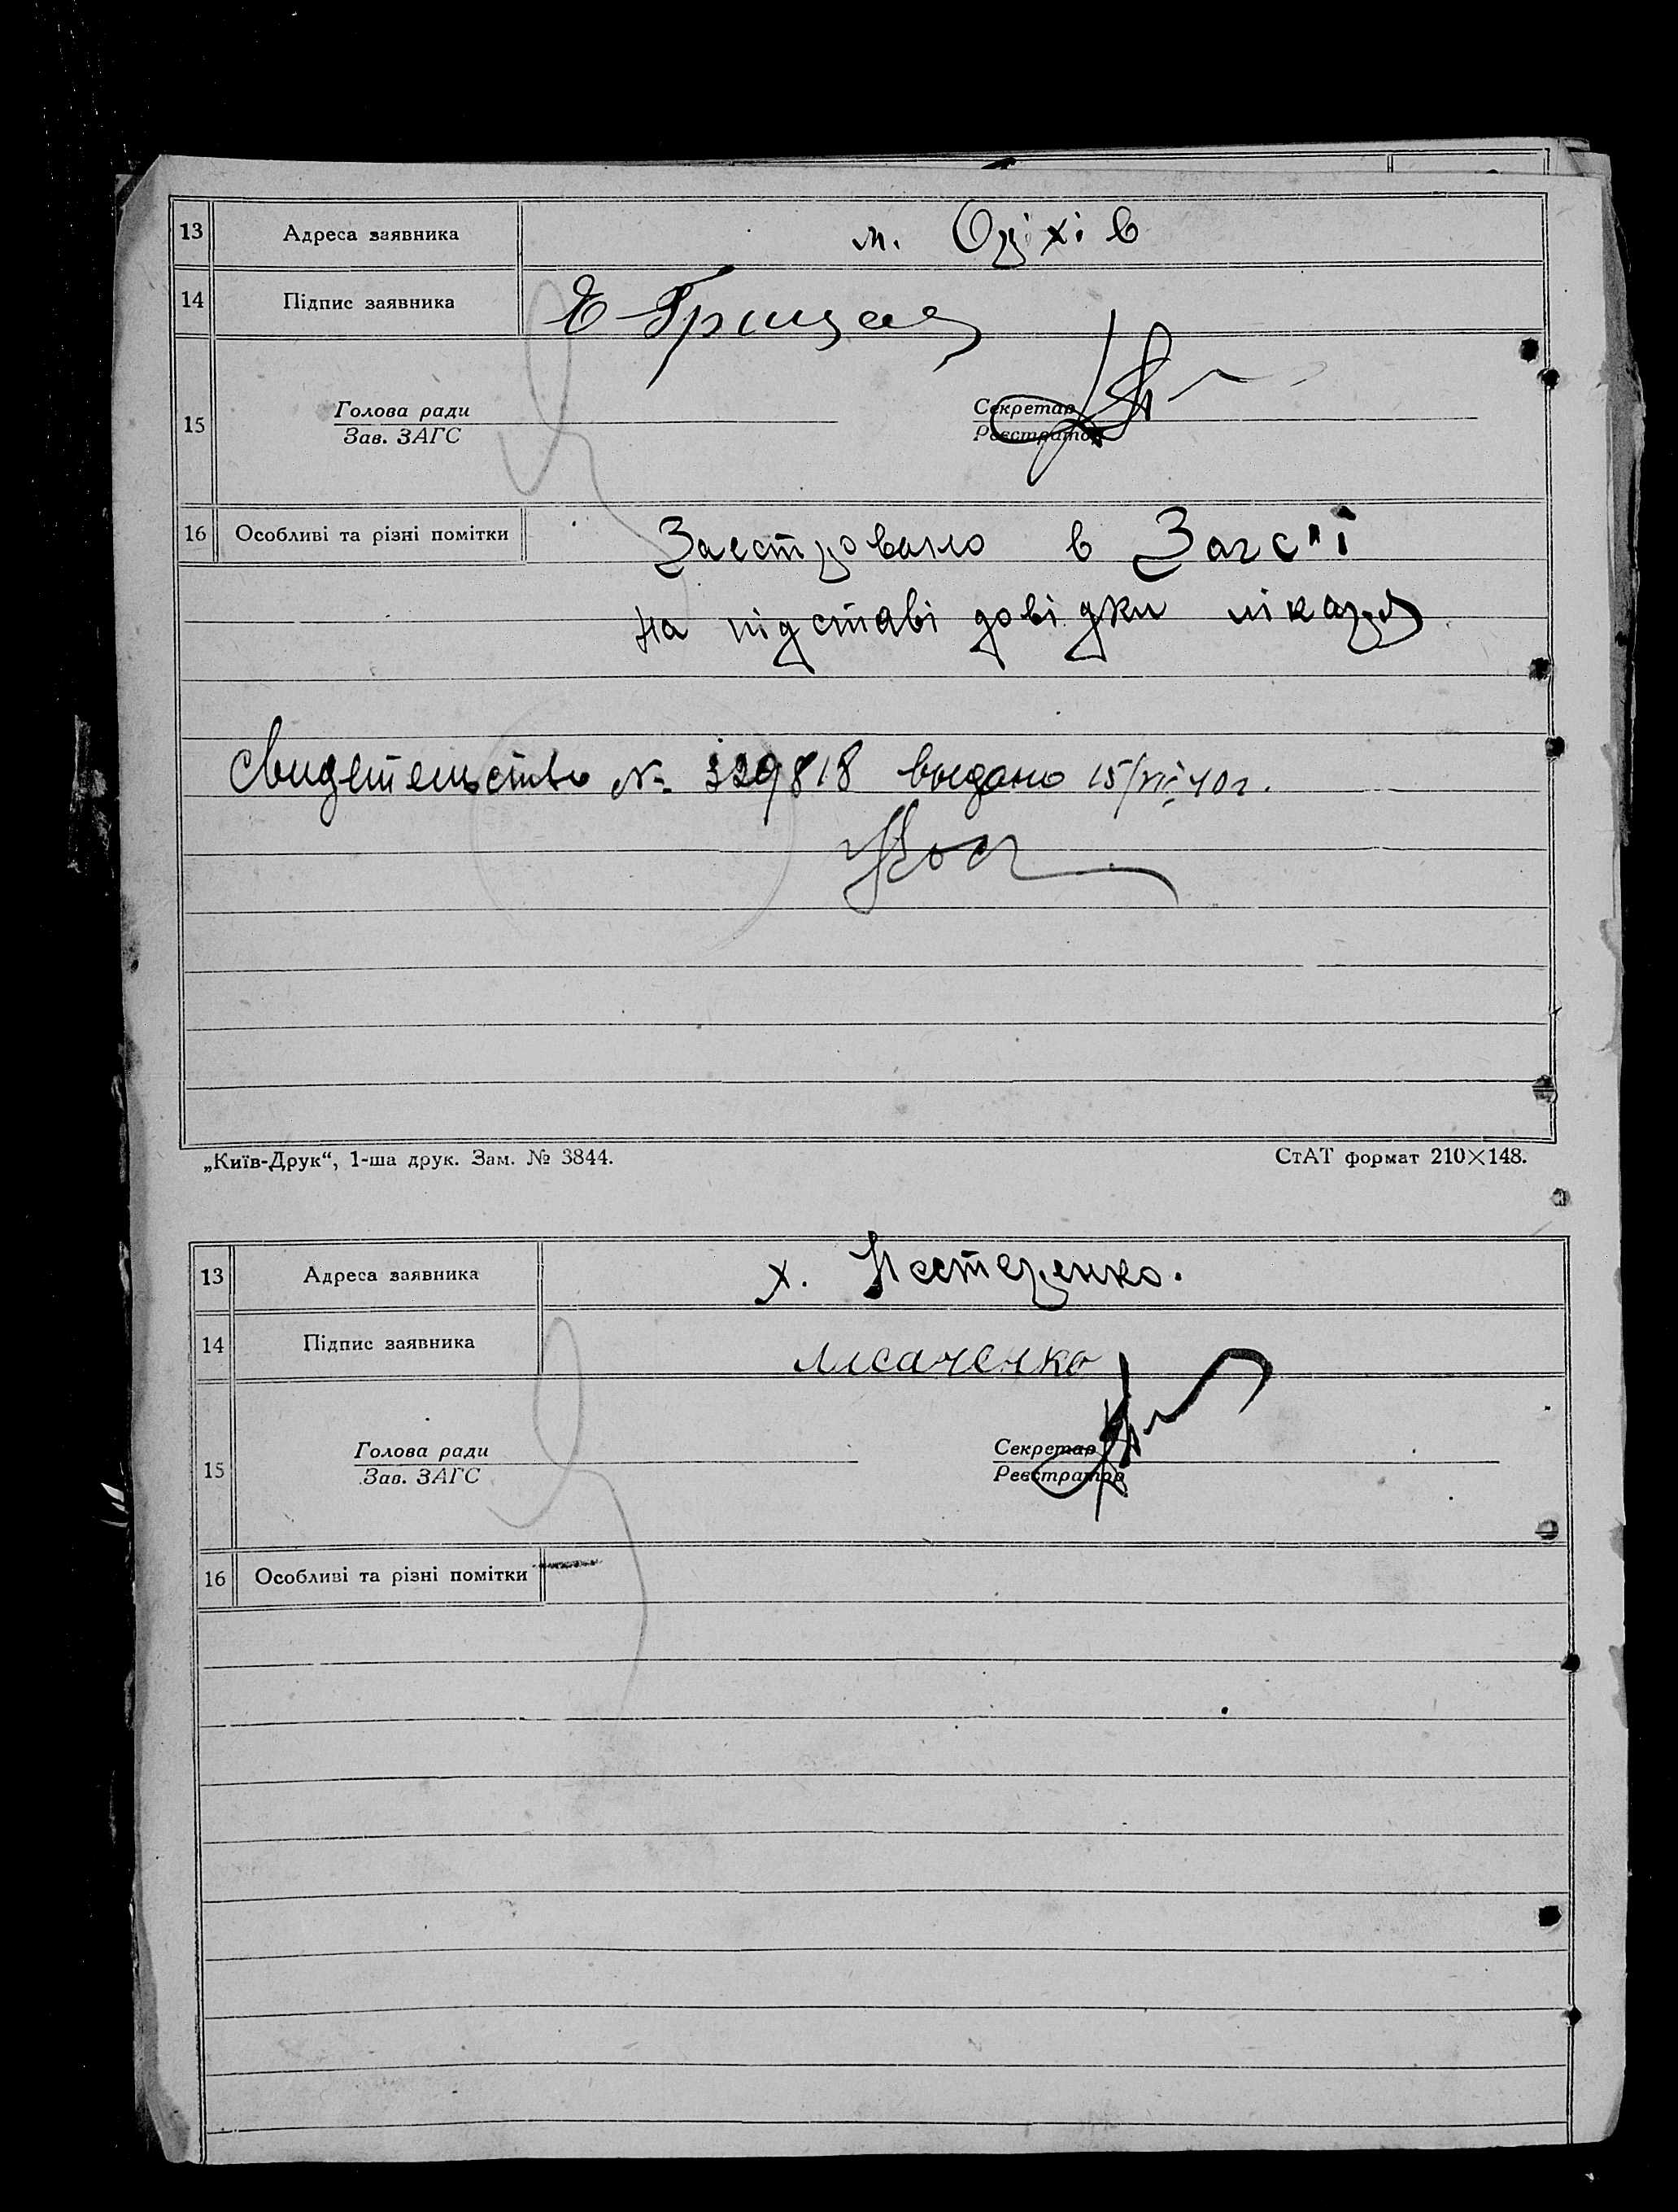 13 Адреса заявника м. Оріхів
14 Підпис заявника Е Грицай
15 Голова ради Секретар
Зав. ЗАГС Реєстратор
16 Особливі та різні помітки Заєстровано в Загс"і
на підставі довідки лікаря
Свидетельство № 329818 выдано 15/VII 40 г.
„Київ-Друк“, 1-ша друк. Зам. № 3844. СтАТ формат 210×148.
13 Адреса заявника х. Нестеренко.
14 Підпис заявника Лисаченко
15 Голова ради Секретар
Зав. ЗАГС Реєстратор
16 Особливі та різні помітки